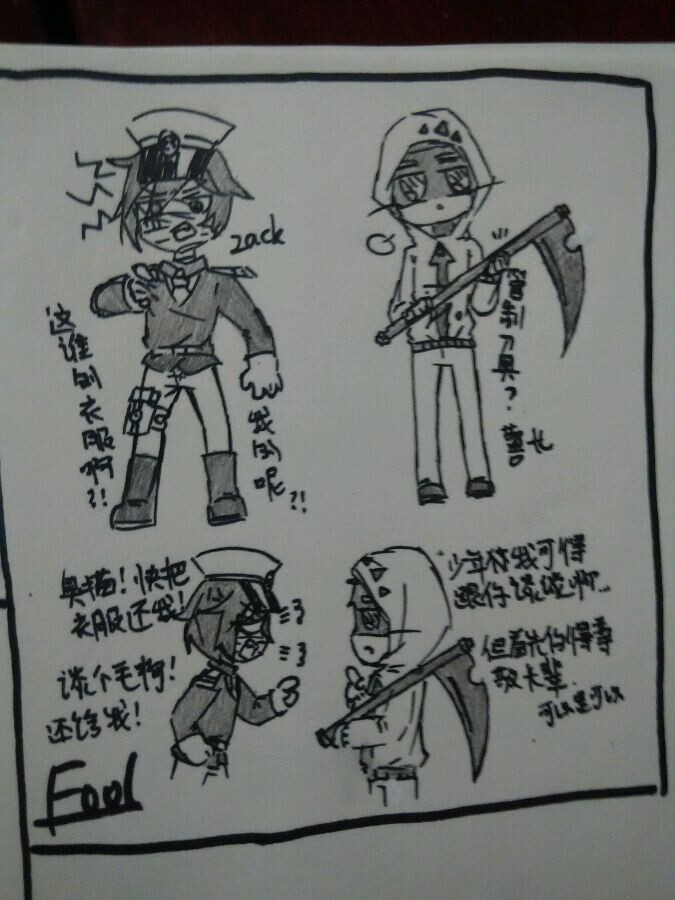 zack
这谁的衣服啊?!
我的呢?!
管制刀具?
警长
臭猫!快把
衣服还我!
谈个毛啊!
还给我!
少年你我可得
跟你谈谈啊..
但首先你得尊
敬长辈.
可以是可以
Fool